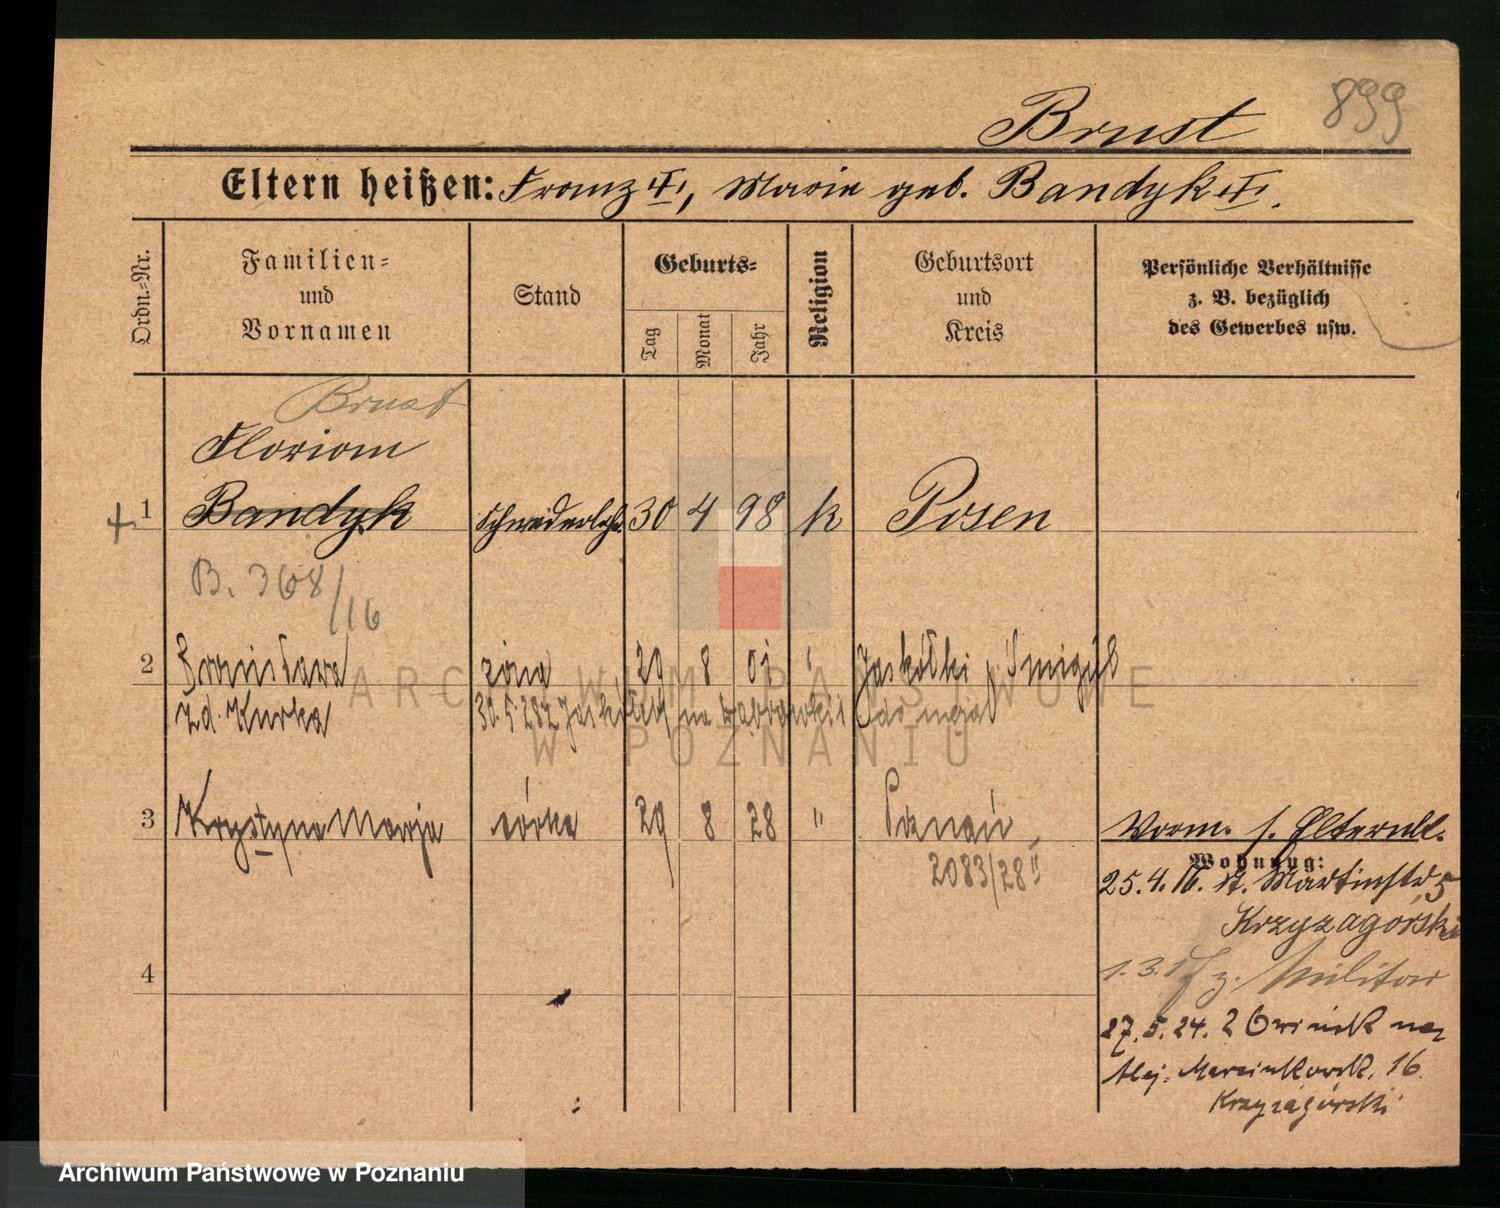 899
Brust
Eltern heißen: Franz †, Marie geb. Bandyk †.
Ordn.-Nr.
Familien- und Vornamen
Stand
Geburts-
Tag
Monat
Jahr
Religion
Geburtsort und Kreis
Persönliche Verhältnisse z. B. bezüglich des Gewerbes usw.
Brust
Florian
1 Bandyk 30 4 98 k Posen
B. 368/16
2 Bronisława żona 29 8 01 " Jaskółki, Śmigiel
zd. Kurka 30.5.28 z
3 Krystyna Marja córka 29 8 28 " Poznań
2083/28 II
Vorm. s. Elternbl.
Wohnung:
25.4.16. St. Martinstr 5
Krzyzagórski
1.3.17 z. Militär
27.5.24. z Owińsk na
Alej. Marcinkowsk. 16
Krzyzagórski
4
ARCHIWUM PAŃSTWOWE
W POZNANIU
Archiwum Państwowe w Poznaniu